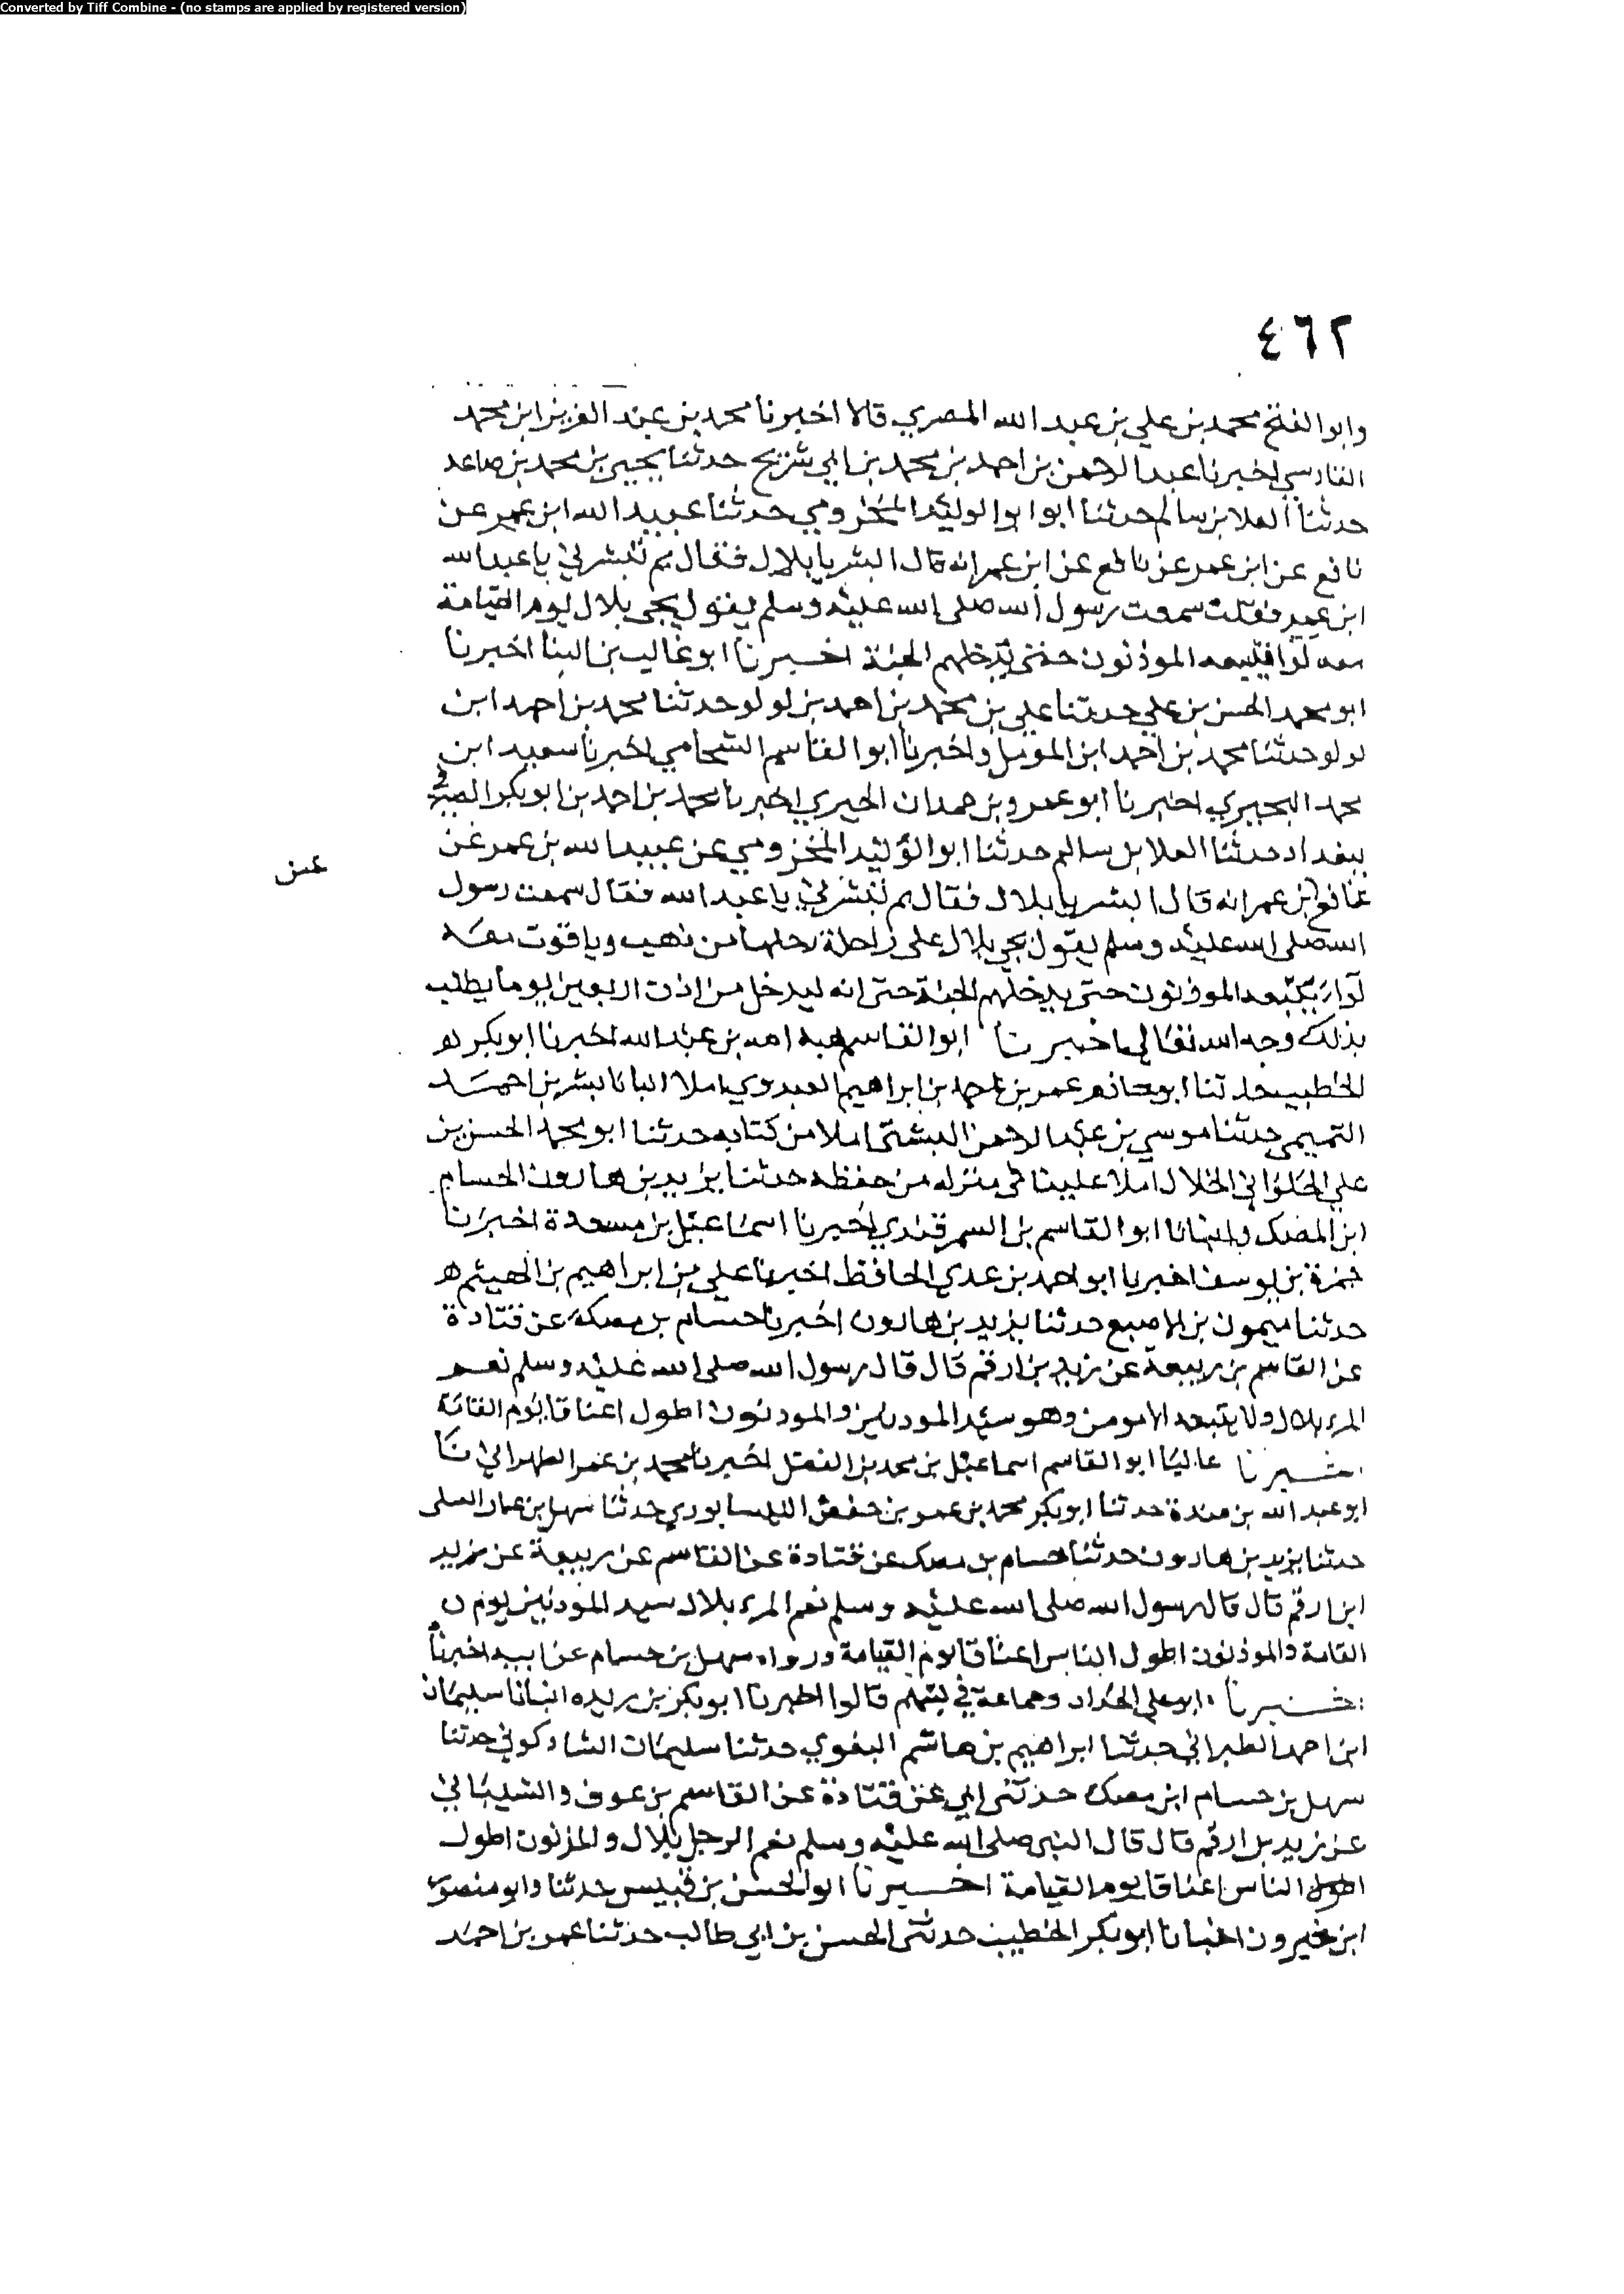 Converted by Tiff Combine - (no stamps are applied by registered version)
٤٦٢
وابو الفتح محمد بن علي بن عبد الله المصري قالا اخبرنا محمد بن عبد العزيز ابن محمد
الفارسي اخبرنا عبد الرحمن بن احمد بن محمد بن ابي شريح حدثنا يحيى بن محمد بن صاعد
حدثنا العلا بن سالم حدثنا ابوا ابوا الوليد المخزومي حدثنا عبيد الله ابن عمر عن
نافع عن ابن عمر عن نافع عن ابن عمر انه قال ابشر يا بلال فقال بم تبشرني يا عبد الله
ابن عمر فقلت سمعت رسول الله صلى الله عليه وسلم يقول يجى بلال يوم القيامة
معه لوا فيتبعه الموذنون حتى يدخلهم الجنة اخبرنا ابو غالب بن البنا اخبرنا
ابو محمد الحسن بن علي حدثنا علي بن محمد بن احمد بن لولو حدثنا محمد بن احمد ابن
لولو حدثنا محمد بن احمد ابن المومل واخبرنا ابو القاسم الشحامي اخبرنا سعيد ابن
محمد البحيري اخبرنا ابو عمرو بن حمدان الحيري اخبرنا محمد بن احمد بن ابو بكر
ببغداد حدثنا العلا بن سالم حدثنا ابو الوليد المخزومي عن عبيد الله بن عمر عن
عن
نافع ابن عمر انه قال ابشر يا بلال فقال بم تبشرني يا عبد الله فقال سمعت رسول
الله صلى الله عليه وسلم يقول يجي بلال على راحلة رحلها من ذهب وياقوت معه
لواء يتبعه الموذنون حتى يدخلهم الجنة حتى انه ليدخل من اذن اربعين يوما يطلب
بذلك وجه الله تعالى اخبرنا ابو القاسم هبة الله بن عبد الله اخبرنا ابو بكر هو
الخطيب حدثنا ابو حازم عمر بن احمد بن ابراهيم العبدوي املا انبانا بشر بن احمد
التميمى حدثنا موسى بن عبد الرحمن البشتى املا من كتابه حدثنا ابو محمد الحسن بن
علي الحلواني الخلال املا علينا فى منزله من حفظه حدثنا يزيد بن هارون الحسام
ابن المصك وانبانا ابو القاسم بن السمرقندي اخبرنا اسماعيل بن مسعدة اخبرنا
حمزة بن يوسف اخبرنا ابو احمد بن عدي الحافظ اخبرنا علي بن ابراهيم بن الهيثم ه
حدثنا ميمون بن الاصبع حدثنا يزيد بن هارون اخبرنا حسام بن مصك عن قتادة
عن القاسم بن ربيعة عن زيد بن ارقم قال قال رسول الله صلى الله عليه وسلم نعم
المرء بلال ولا يتبعه الا مومن وهو سيد الموذنين والموذنون اطول اعناقا يوم القيامة
اخبرنا عاليا ابو القاسم اسماعيل بن محمد بن الفضل اخبرنا محمد بن عمر الطهراني نا
ابو عبد الله بن مندة حدثنا ابو بكر محمد بن عمر بن حفص النيسابوري حدثنا سهل بن عمار العتكى
حدثنا يزيد بن هارون حدثنا حسام بن مصك عن قتادة عن القاسم عن ربيعة عن يزيد
ابن ارقم قال قال رسول الله صلى الله عليه وسلم نعم المرء بلال سيد الموذنين يوم
القامة والموذنون اطول الناس اعناقا يوم القيامة ورواه سهل بن حسام عن ابيه اخبرنا
اخبرنا ابو علي الحداد وجماعة في كتبهم قالوا اخبرنا ابو بكر بن ريذه انبانا سليمان
ابن احمد الطبراني حدثنا ابراهيم بن هاشم البغوي حدثنا سليمان الشاذكوني حدثنا
سهل بن حسام ابن مصك حدثنى ابي عن قتادة عن القاسم بن عوف والشيباني
عن زيد بن ارقم قال قال النبي صلى الله عليه وسلم نعم الرجل بلال والموذنون اطول
اطول الناس اعناقا يوم القيامة اخبرنا ابو الحسن بن قبيس حدثنا وابو منصور
ابن خيرون انبانا ابو بكر الخطيب حدثنى الحسن بن ابي طالب حدثنا عمر بن احمد